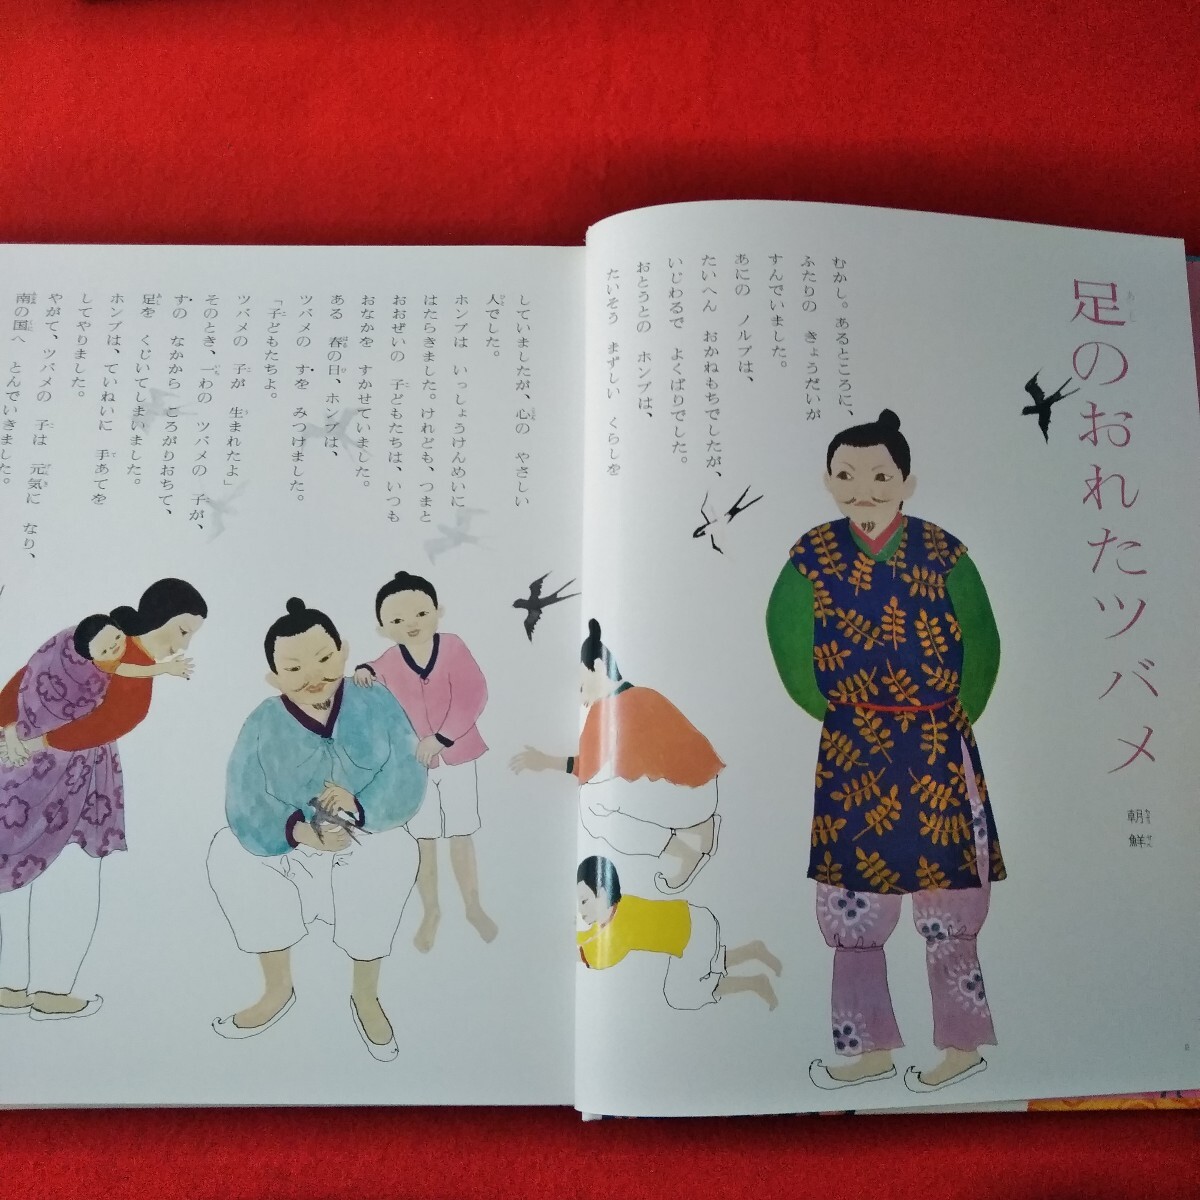 足のおれたツバメ
あし
朝鮮
ちょうせん
むかし。あるところに、
ふたりの きょうだいが
すんでいました。
あにの ノルブは、
たいへん おかねもちでしたが、
いじわるで よくばりでした。
おとうとの ホンブは、
たいそう まずしい くらしを
していましたが、心の やさしい
人でした。
ホンブは いっしょうけんめいに
はたらきました。けれども、つまと
おおぜいの 子どもたちは、いつも
おなかを すかせていました。
ある 春の日、ホンブは、
ツバメの すを みつけました。
「子どもたちよ。
ツバメの 子が 生まれたよ」
そのとき、一わの ツバメの 子が、
すの なかから ころがりおちて、
足を くじいてしまいました。
ホンブは、ていねいに 手あてを
してやりました。
やがて、ツバメの 子は 元気に なり、
南の国へ とんでいきました。